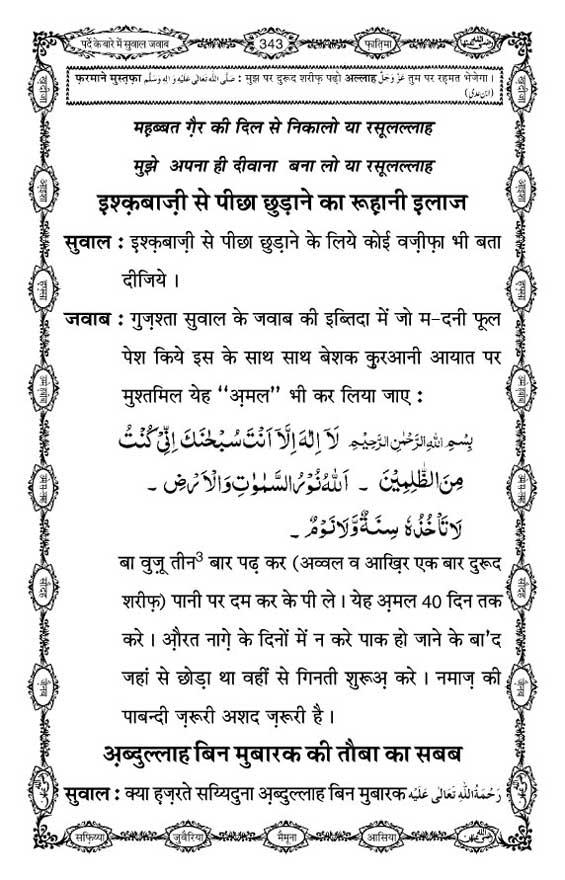 पर्दे के बारे में सुवाल जवाब
343
फ़ातिमा
फ़रमाने मुस्तफ़ा صَلَّى اللّٰهُ تَعَالٰى عَلَيْهِ وَاٰلِهٖ وَسَلَّم : मुझ पर दुरूद शरीफ़ पढ़ो अल्लाह عَزَّوَجَلَّ तुम पर रहमत भेजेगा ।
(ابن عدی)
महब्बत ग़ैर की दिल से निकालो या रसूलल्लाह
मुझे अपना ही दीवाना बना लो या रसूलल्लाह
इश्क़बाज़ी से पीछा छुड़ाने का रूह़ानी इलाज
सुवाल : इश्क़बाज़ी से पीछा छुड़ाने के लिये कोई वज़ीफ़ा भी बता
दीजिये ।
जवाब : गुज़श्ता सुवाल के जवाब की इब्तिदा में जो म-दनी फूल
पेश किये इस के साथ साथ बेशक कु़रआनी आयात पर
मुश्तमिल येह “अ़मल” भी कर लिया जाए :
بِسْمِ اللهِ الرَّحْمٰنِ الرَّحِيْمِ لَآ اِلٰهَ اِلَّآ اَنْتَ سُبْحٰنَكَ اِنِّيْ كُنْتُ
مِنَ الظّٰلِمِيْنَ ۔ اَللهُ نُوْرُ السَّمٰوٰتِ وَالْاَرْضِ ۔
لَا تَاْخُذُهٗ سِنَةٌ وَّلَا نَوْمٌ ۔
बा वुज़ू तीन3 बार पढ़ कर (अव्वल व आख़िर एक बार दुरूद
शरीफ़) पानी पर दम कर के पी ले । येह अ़मल 40 दिन तक
करे । औ़रत नागे़ के दिनों में न करे पाक हो जाने के बा’द
जहां से छोड़ा था वहीं से गिनती शुरूअ़ करे । नमाज़ की
पाबन्दी ज़रूरी अशद ज़रूरी है ।
अ़ब्दुल्लाह बिन मुबारक की तौबा का सबब
सुवाल : क्या ह़ज़रते सय्यिदुना अ़ब्दुल्लाह बिन मुबारक رَحْمَةُ اللّٰهِ تَعَالٰى عَلَيْهِ
सफ़िय्या
जुवैरिया
मैमूना
आसिया